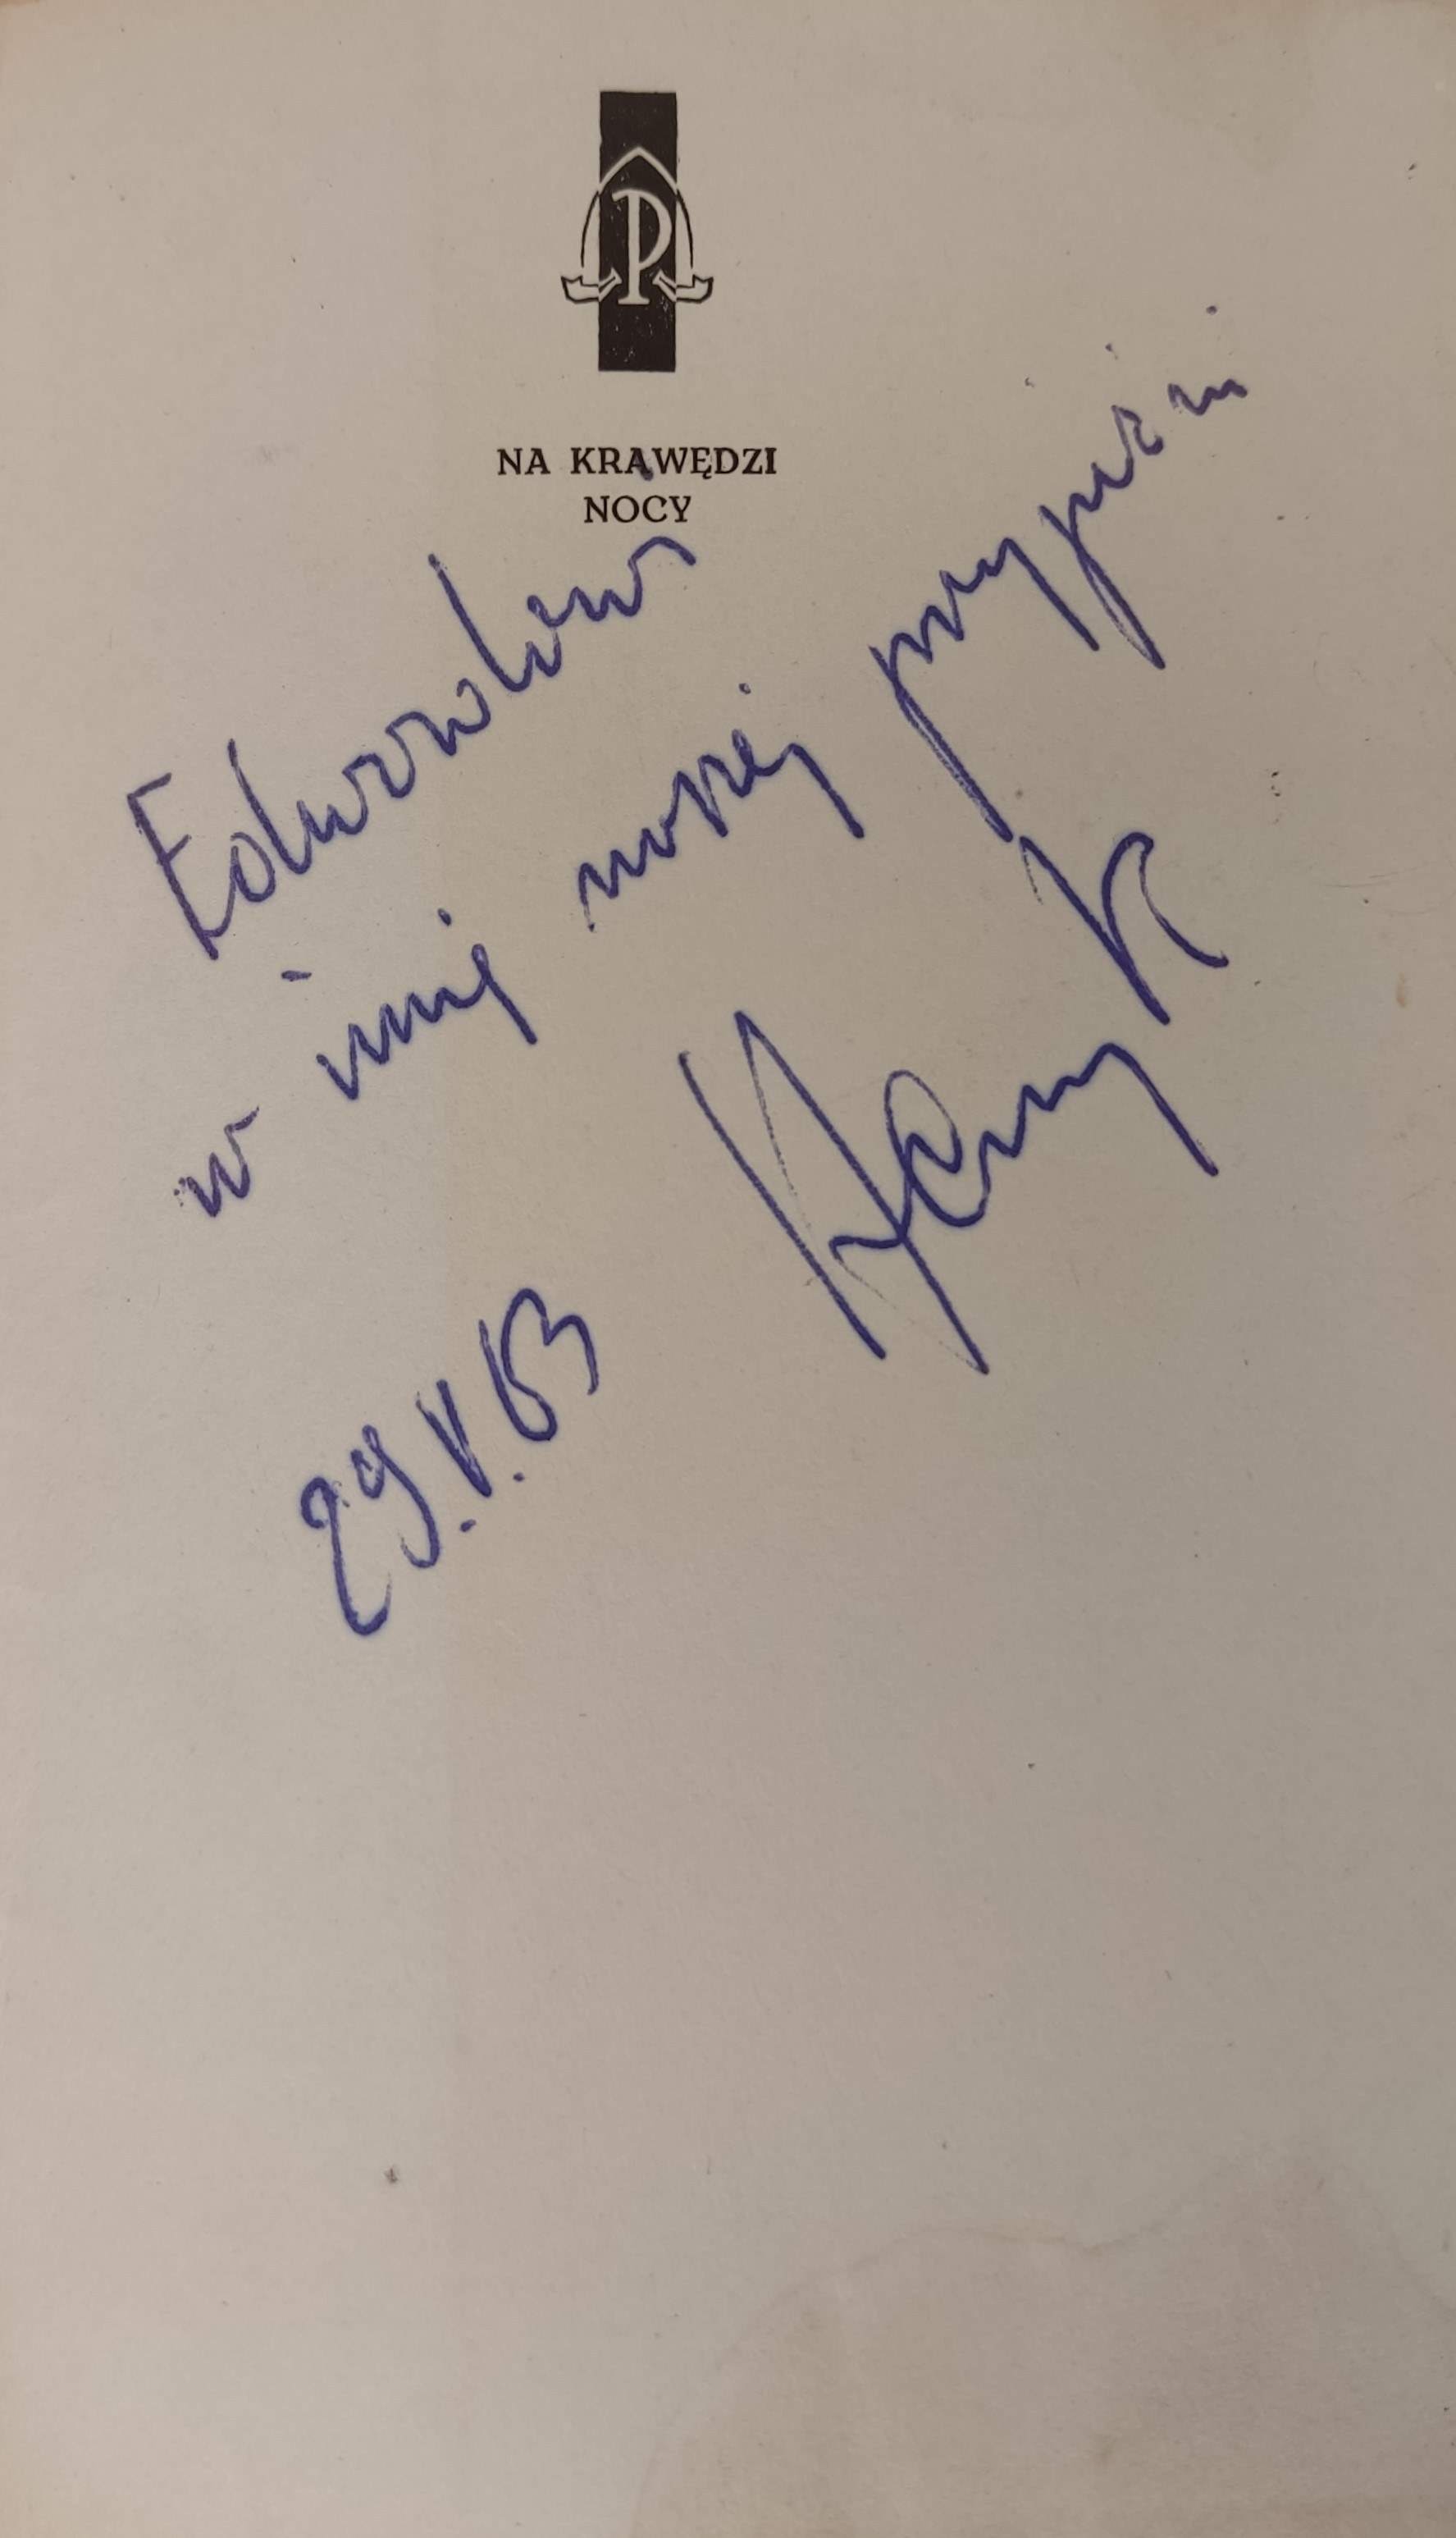 P
NA KRAWĘDZI
NOCY
Edwardowi
w imię naszej przyjaźni
Henryk
29.V.63